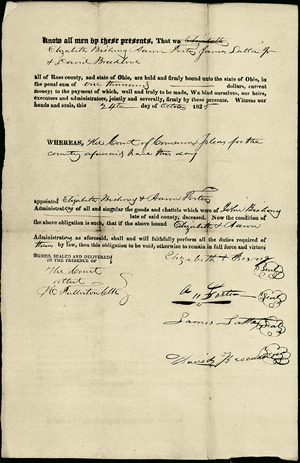 Know all men by these presents, That we Elizabeth
Elizabeth Bishong Aaron Foster James Latta Jr
& David Breedlove
all of Ross county, and state of Ohio, are held and firmly bound unto the state of Ohio, in
the penal sum of one thousand dollars, current
money; to the payment of which, well and truly to be made, We bind ourselves, our heirs,
executors and administrators, jointly and severally, firmly by these presents. Witness our
hands and seals, this 24th day of October 1825
WHEREAS, The Court of Common pleas for the
county aforesaid have this day
appointed Elizabeth Bishong & Aaron Foster
Administrators of all and singular the goods and chattels which were of John Bishong
late of said county, deceased. Now the condition of
the above obligation is such, that if the above bound Elizabeth & Aaron
Administrators, as aforesaid, shall and will faithfully perform all the duties required of
them by law, then this obligation to be void; otherwise to remain in full force and virtue
SIGNED, SEALED AND DELIVERED
IN THE PRESENCE OF
The Court
attest
Fullerton Clk
Elizabeth + Seal
A Foster Seal
James Latta Seal
David Seal